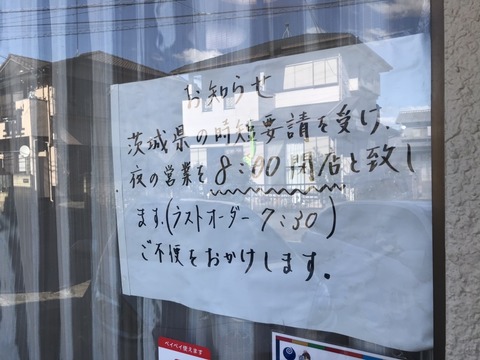 お知らせ
茨城県の時短要請を受け、
夜の営業を8:00閉店と致し
ます。(ラストオーダー 7:30)
ご不便をおかけします。
ペイペイ使えます